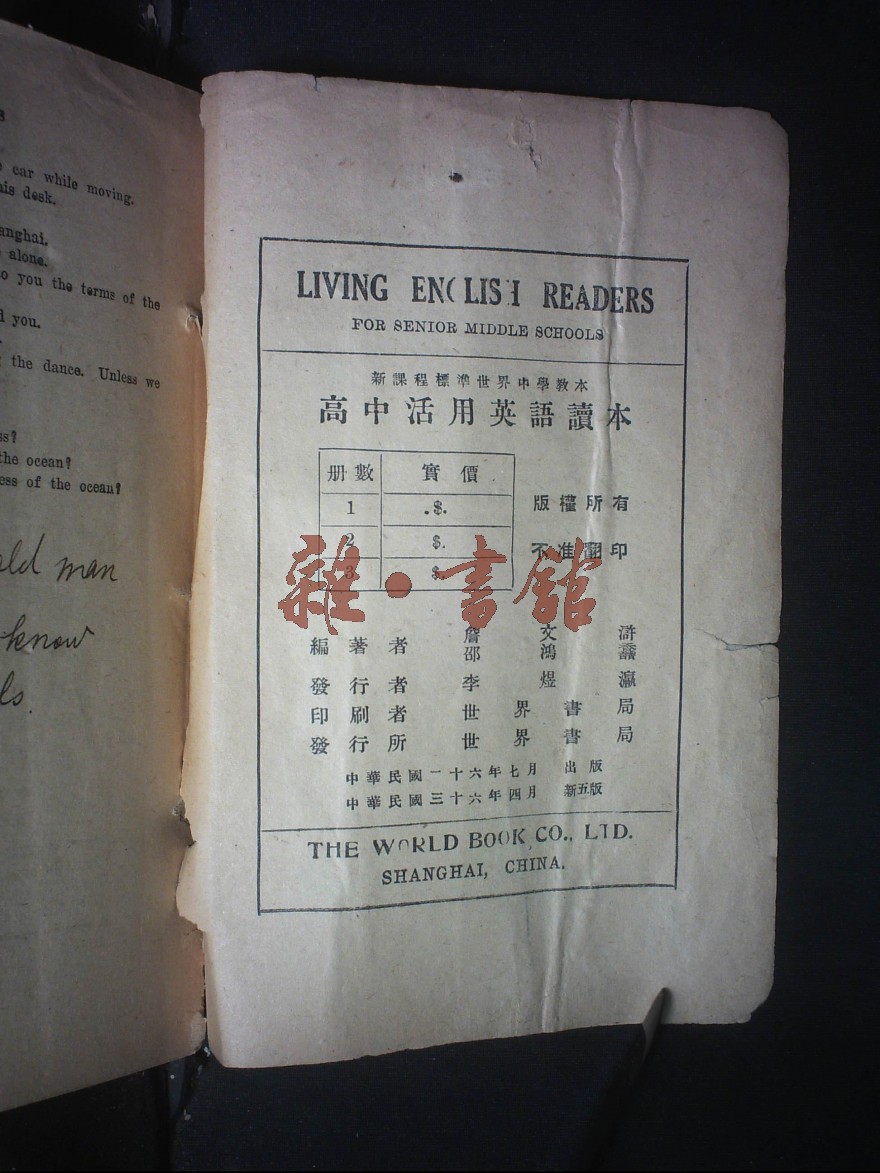 8
car while moving.
his desk.
anghai.
alone.
o you the terms of the
d you.
the dance. Unless we
ss?
the ocean?
ess of the ocean?
old man
know
ls.
LIVING ENGLISH READERS
FOR SENIOR MIDDLE SCHOOLS
新課程標準世界中學教本
高中活用英語讀本
册數 實價
1 $.
2 $.
3 $.
版權所有
不准翻印
雜·書館
編著者 詹文滸 邵鴻馨
發行者 李煜瀛
印刷者 世界書局
發行所 世界書局
中華民國二十六年七月 出版
中華民國三十六年四月 新五版
THE WORLD BOOK CO., LTD.
SHANGHAI, CHINA.